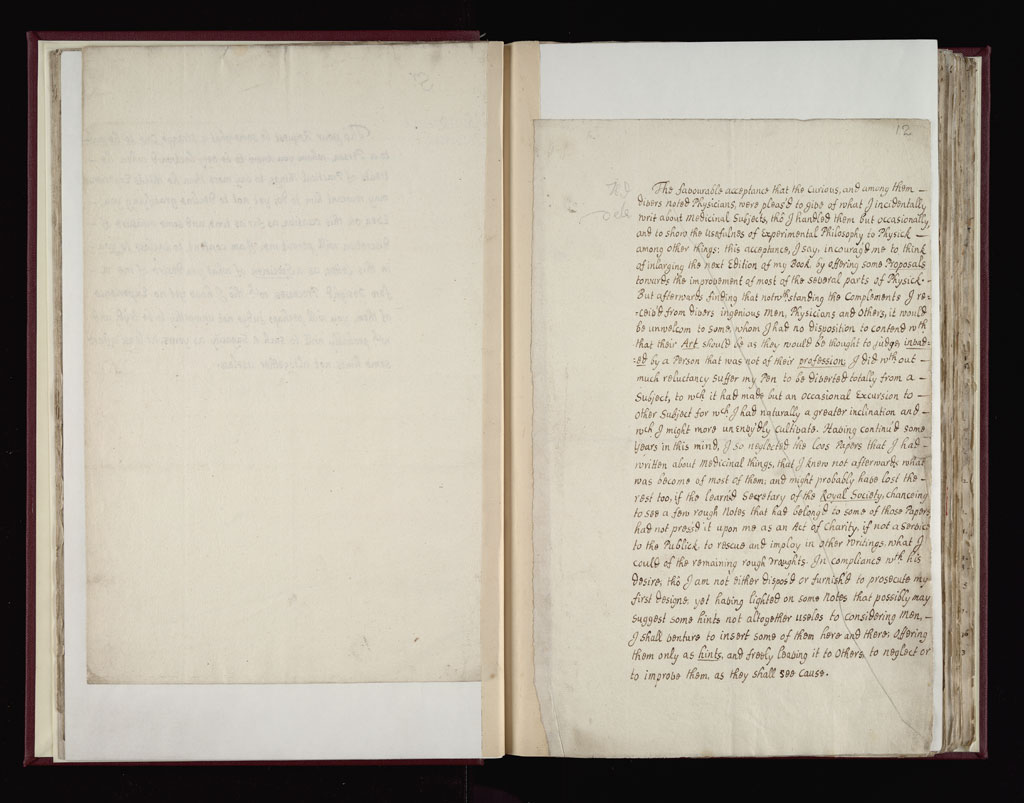 12
The favourable acceptance that the Curious, and among them —
divers noted Physicians, were pleas'd to give of what I incidentally
writ about Medicinal Subjects, thô I handled them but occasionally,
and to show the Usefulnes of Experimental Philosophy to Physick —
among other things; this acceptance, I say, incourag'd me to think
of inlarging the next Edition of my Book, by offering some Proposals
towards the improvement of most of the several parts of Physick.
But afterwards finding that notwthstanding the Complements I re=
=ceiv'd from divers ingenious Men, Physicians and Others, it would
be unwelcom to some, whom I had no disposition to contend wth
that their Art should be as they would be thought to judge, invad=
=ed by a Person that was not of their profession; I did wth out —
much reluctancy suffer my Pen to be diverted totally from a —
Subject, to wch it had made but an occasional Excursion to —
other Subject for wch I had naturally a greater inclination and —
wch I might more unenvy'dly cultivate. Having continu'd some
Years in this mind, I so neglected the loos Papers that I had —
written about Medicinal things, that I knew not afterwards what
was become of most of them; and might probably have lost the —
rest too, if the learn'd Secretary of the Royal Society, chanceing
to see a few rough Notes that had belong'd to some of those Papers
had not press'd it upon me as an Act of Charity, if not a Service
to the Publick, to rescue and imploy in other Writings, what I
could of the remaining rough Draughts. In compliance wth his
desire, thô I am not either dispos'd or furnish'd to prosecute my
first designe, yet having lighted on some Notes that possibly may
suggest some hints not altogether useles to considering Men, —
I shall venture to insert some of them here and there; offering
them only as hints, and freely leaving it to Others, to neglect or
to improve them, as they shall see cause.